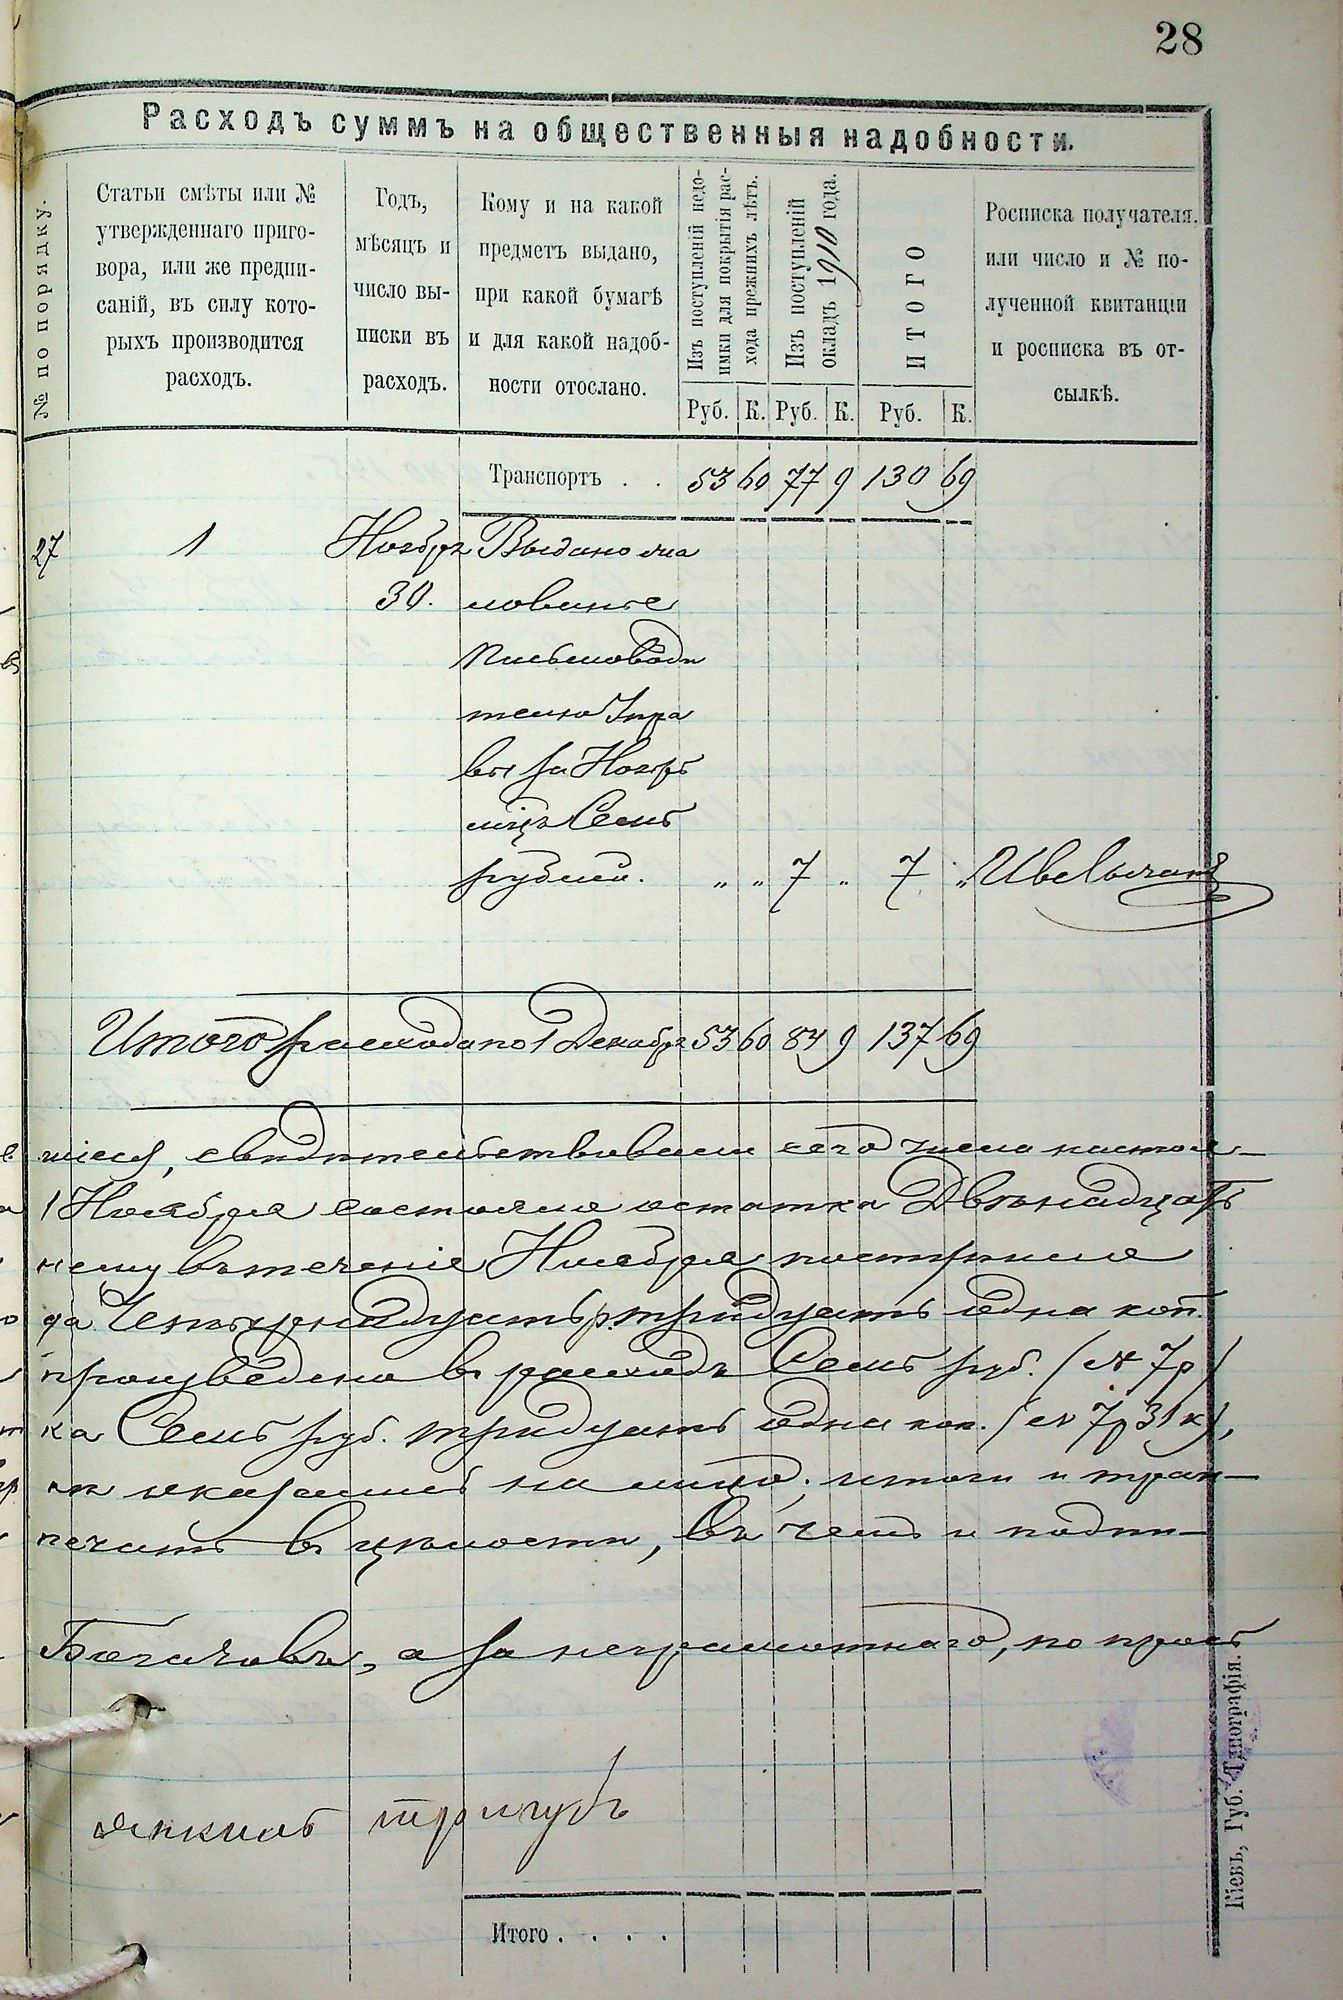 28
Расходъ суммъ на общественныя надобности.
№ по порядку.
Статьи смѣты или №
утвержденнаго приго-
вора, или же предпи-
саній, въ силу кото-
рыхъ производится
расходъ.
Годъ,
мѣсяцъ и
число вы-
писки въ
расходъ.
Кому и на какой
предметъ выдано,
при какой бумагѣ
и для какой надоб-
ности отослано.
Изъ поступленій недо-
имки для покрытія рас-
хода прежнихъ лѣтъ.
Изъ поступленій
окладъ 1910 года.
ИТОГО
Росписка получателя,
или число и № по-
лученной квитанціи
и росписка въ от-
сылкѣ.
Руб. К. Руб. К. Руб. К.
Транспортъ . . 53 60 77 9 130 69
27 1 Ноябрь Выдано жа
30. лованье
письмоводи
телю Упра
вы за Ноябрь
мѣцъ Семь
рублей. „ „ 7 „ 7 „
Итого расхода по 1 Декабря 53 60 84 9 137 69
шіеся, свидѣтельствовали сего числа настоя-
1 Ноября состояло остатка Двѣнадцать
нему въ теченіе Ноября поступило
да Четырнадцать р. тридцать одна коп.
произведено въ расходъ Семь руб. (7 р)
ка Семь руб. тридцать одна коп. (7 р 31 к),
оказались на лицо; итоги и тран-
печать въ цѣлости, въ чемъ и подпи-
а за неграмотнаго, по прось
Янкель Тригубъ
Итого . . . .
Кіевъ, Губ. Типографія.